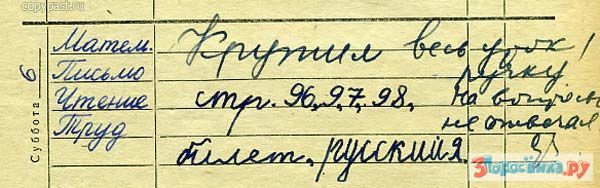 copypast.ru
Суббота 6
Матем. Крутил весь урок
Письмо ручку
Чтение стр. 96, 97, 98, на вопросы
Труд не отвечал
билет, русский я.
3Поросёнка.ру